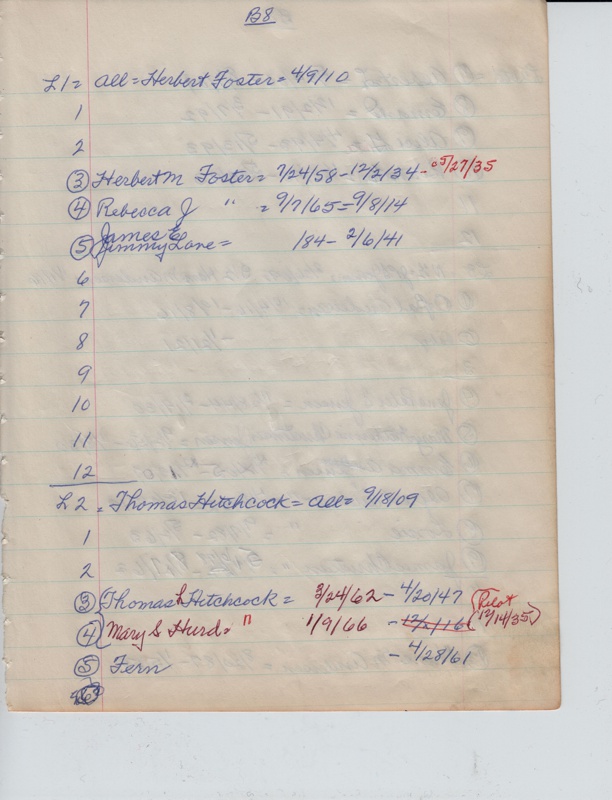 B8
L1 = All = Herbert Foster = 4/9/10
1
2
③ Herbert M Foster = 7/24/58 - 12/2/34 - 5/27/35
④ Rebecca J " = 9/7/65 = 9/8/14
James E
⑤ Jimmy Lane = 184 - 2/6/41
6
7
8
9
10
11
12
L2 = Thomas Hitchcock = All = 9/18/09
1
2
③ Thomas h Hitchcock = 3/24/62 - 4/20/47 (Pilot
④ Mary S Hurd = " 1/9/66 - 12/21/16 12/14/35)
⑤ Fern - 4/28/61